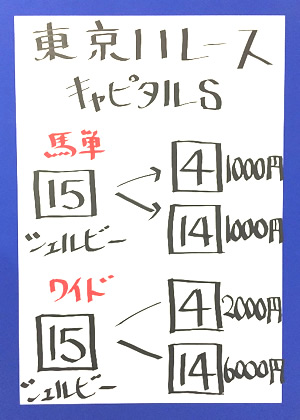 東京11レース
キャピタルS
馬単
15
シェルビー
4 1000円
14 1000円
ワイド
15
シェルビー
4 2000円
14 6000円